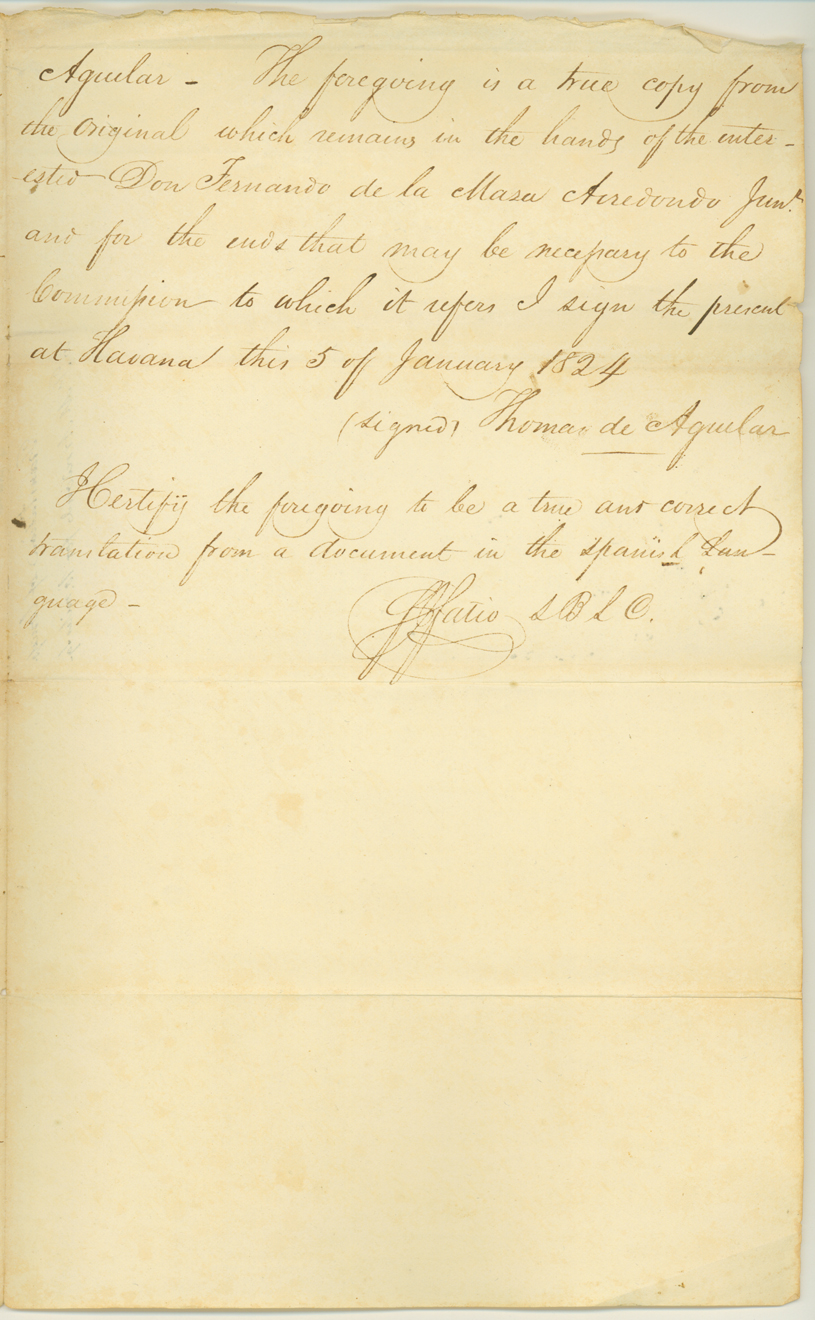 Aguilar - The foregoing is a true copy from
the Original which remains in the hands of the inter-
ested Don Fernando de la Maza Arredondo Junr.
and for the ends that may be necessary to the
Commission to which it refers I sign the present
at Havana this 5 of January 1824
(signed) Thomas de Aguilar
I Certify the foregoing to be a true and correct
translation from a document in the Spanish Lan-
guage -
FJFatio S B L C.